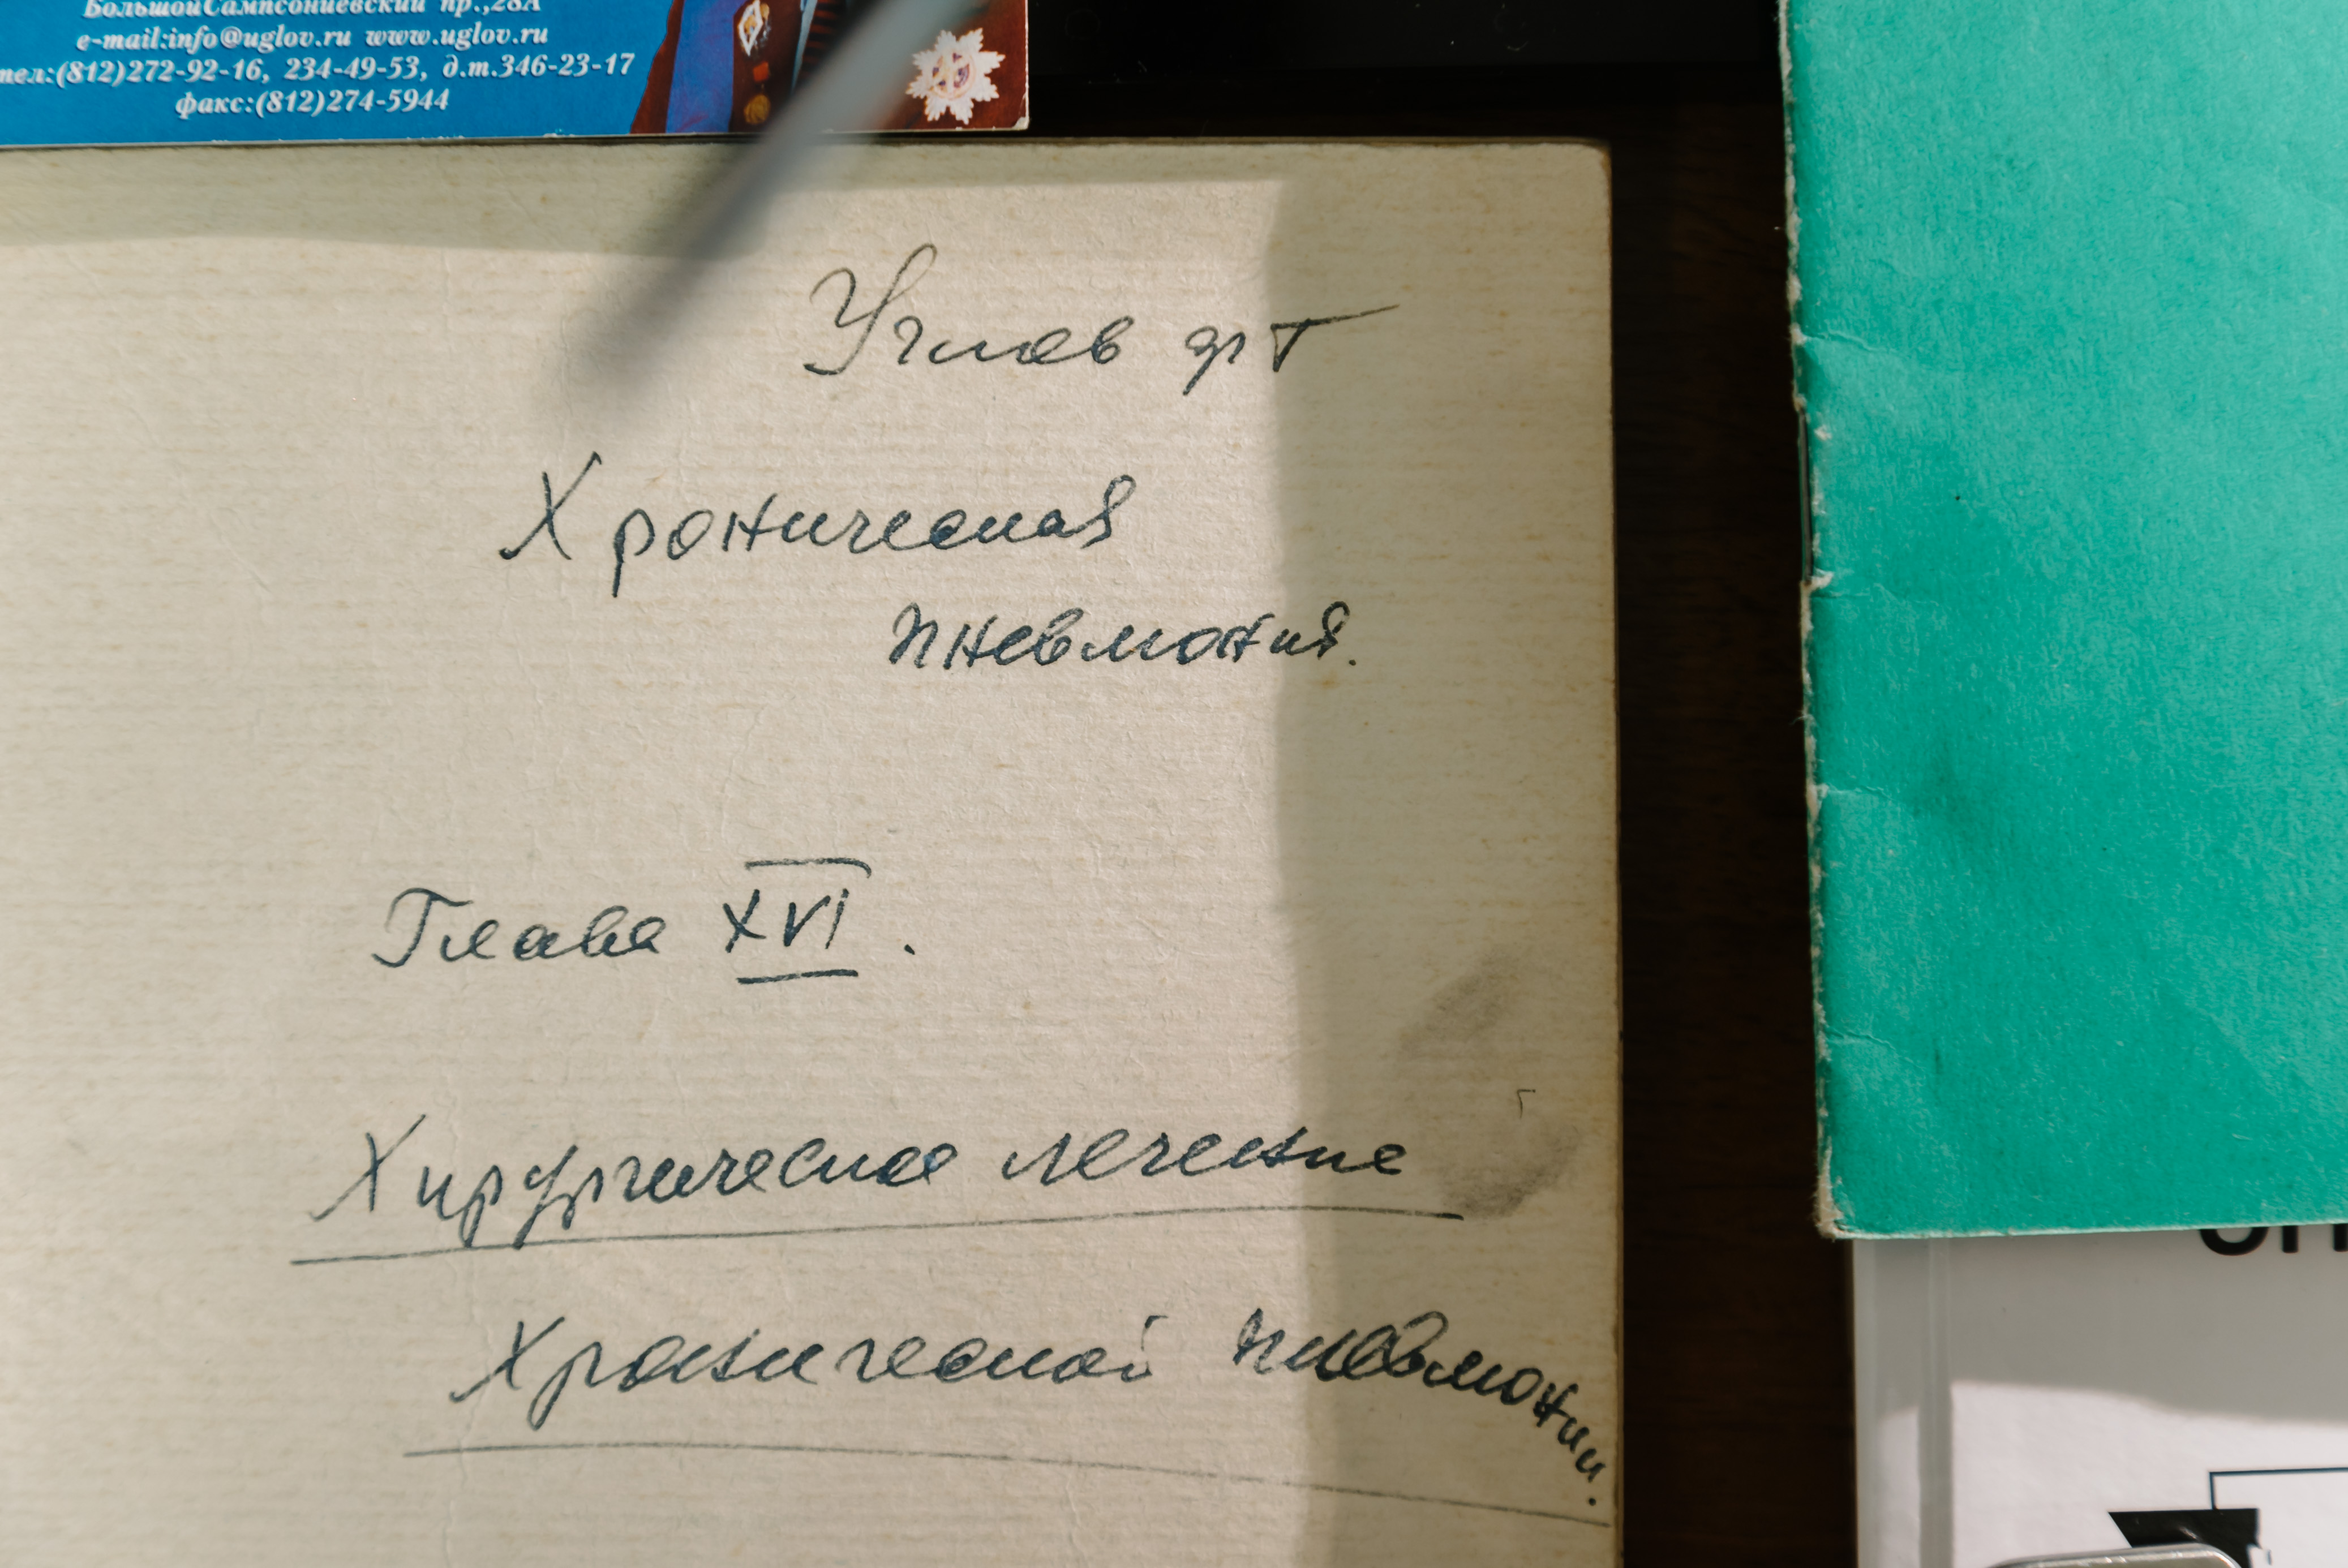 Большой Сампсониевский пр.,28А
e-mail:info@uglov.ru www.uglov.ru
тел:(812)272-92-16, 234-49-53, д.т.346-23-17
факс:(812)274-5944
Углов
Хроническая
пневмония.
Глава XVI.
Хирургическое лечение
Хронической пневмонии.